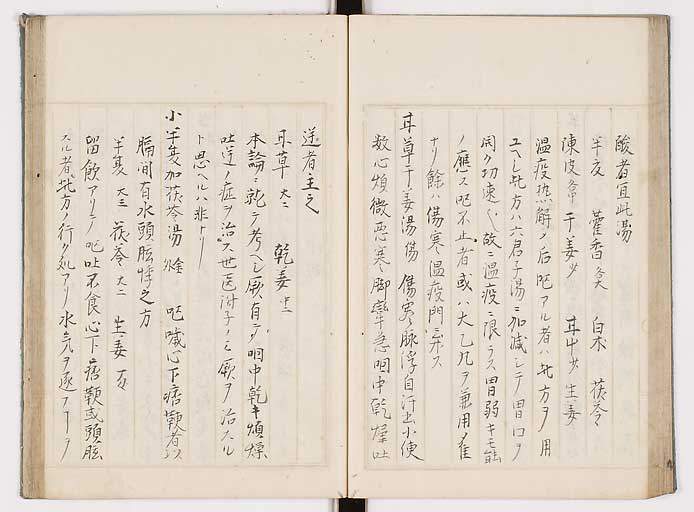 酸者宜此湯
半夏　藿香 各大　白朮　茯苓
陳皮 各中　干姜 少　耳中 少　生姜
温疫热解ノ后呕アル者ハ此方ヲ用
ユヘシ此方ハ六君子湯ニ加减シテ胃口ヲ
開ク功速シ故ニ温疫ニ限ラス胃弱キモ能
ノ應ス呕不止者或ハ大乙丸ヲ兼用
ナリ餘ハ傷寒温疫門ニ弁ス
耳草干姜湯 傷　傷寒脉浮自汗出小便
数心煩微悪寒脚攣急咽中乾燥吐
逆者主之
耳草 大二　乾姜 中二
本論ニ就テ考ヘシ厥有テ咽中乾キ煩燥
吐逆ノ症ヲ治ス世医附子ノミ厥ヲ治スル
ト思ヘルハ非ナリ
小半夏加茯苓湯 金　呕噦心下痞鞕者
膈間有水頭眩悸之方
半夏 大三　茯苓 大二　生姜
留飲アリテ呕吐不食心下痞鞕或頭眩
スル者此方ノ行ク処ナリ水氣ヲ逐フヿヲ